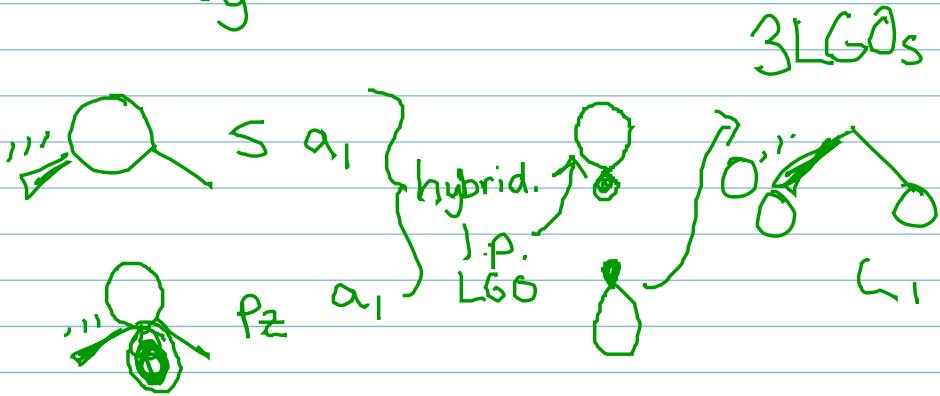 y
3LGOs
S a1
hybrid.
l.p.
LGO
a1 Pz
a1